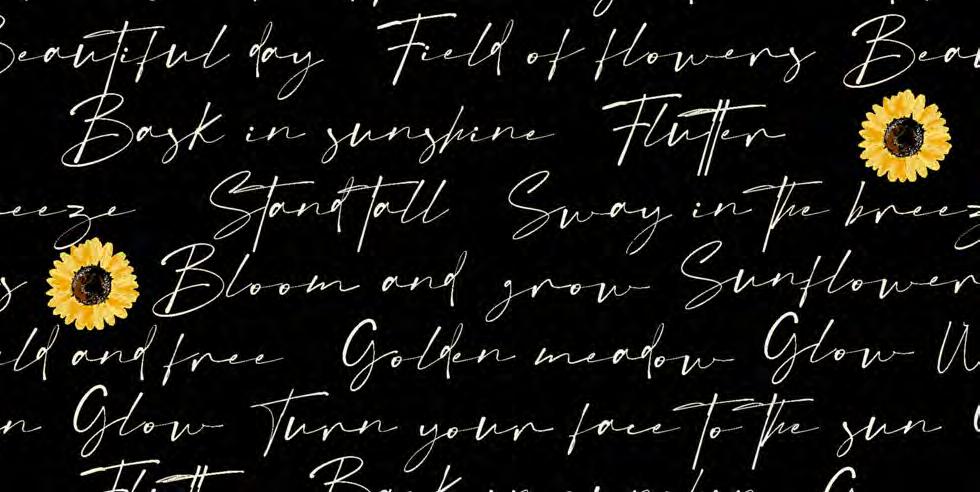 Beautiful day Field of flowers Beau
Bask in sunshine Flutter
eeze Stand tall Sway in the breez
s Bloom and grow Sunflower
ld and free Golden meadow Glow W
n Glow Turn your face to the sun
Flutter Bask in sunshine